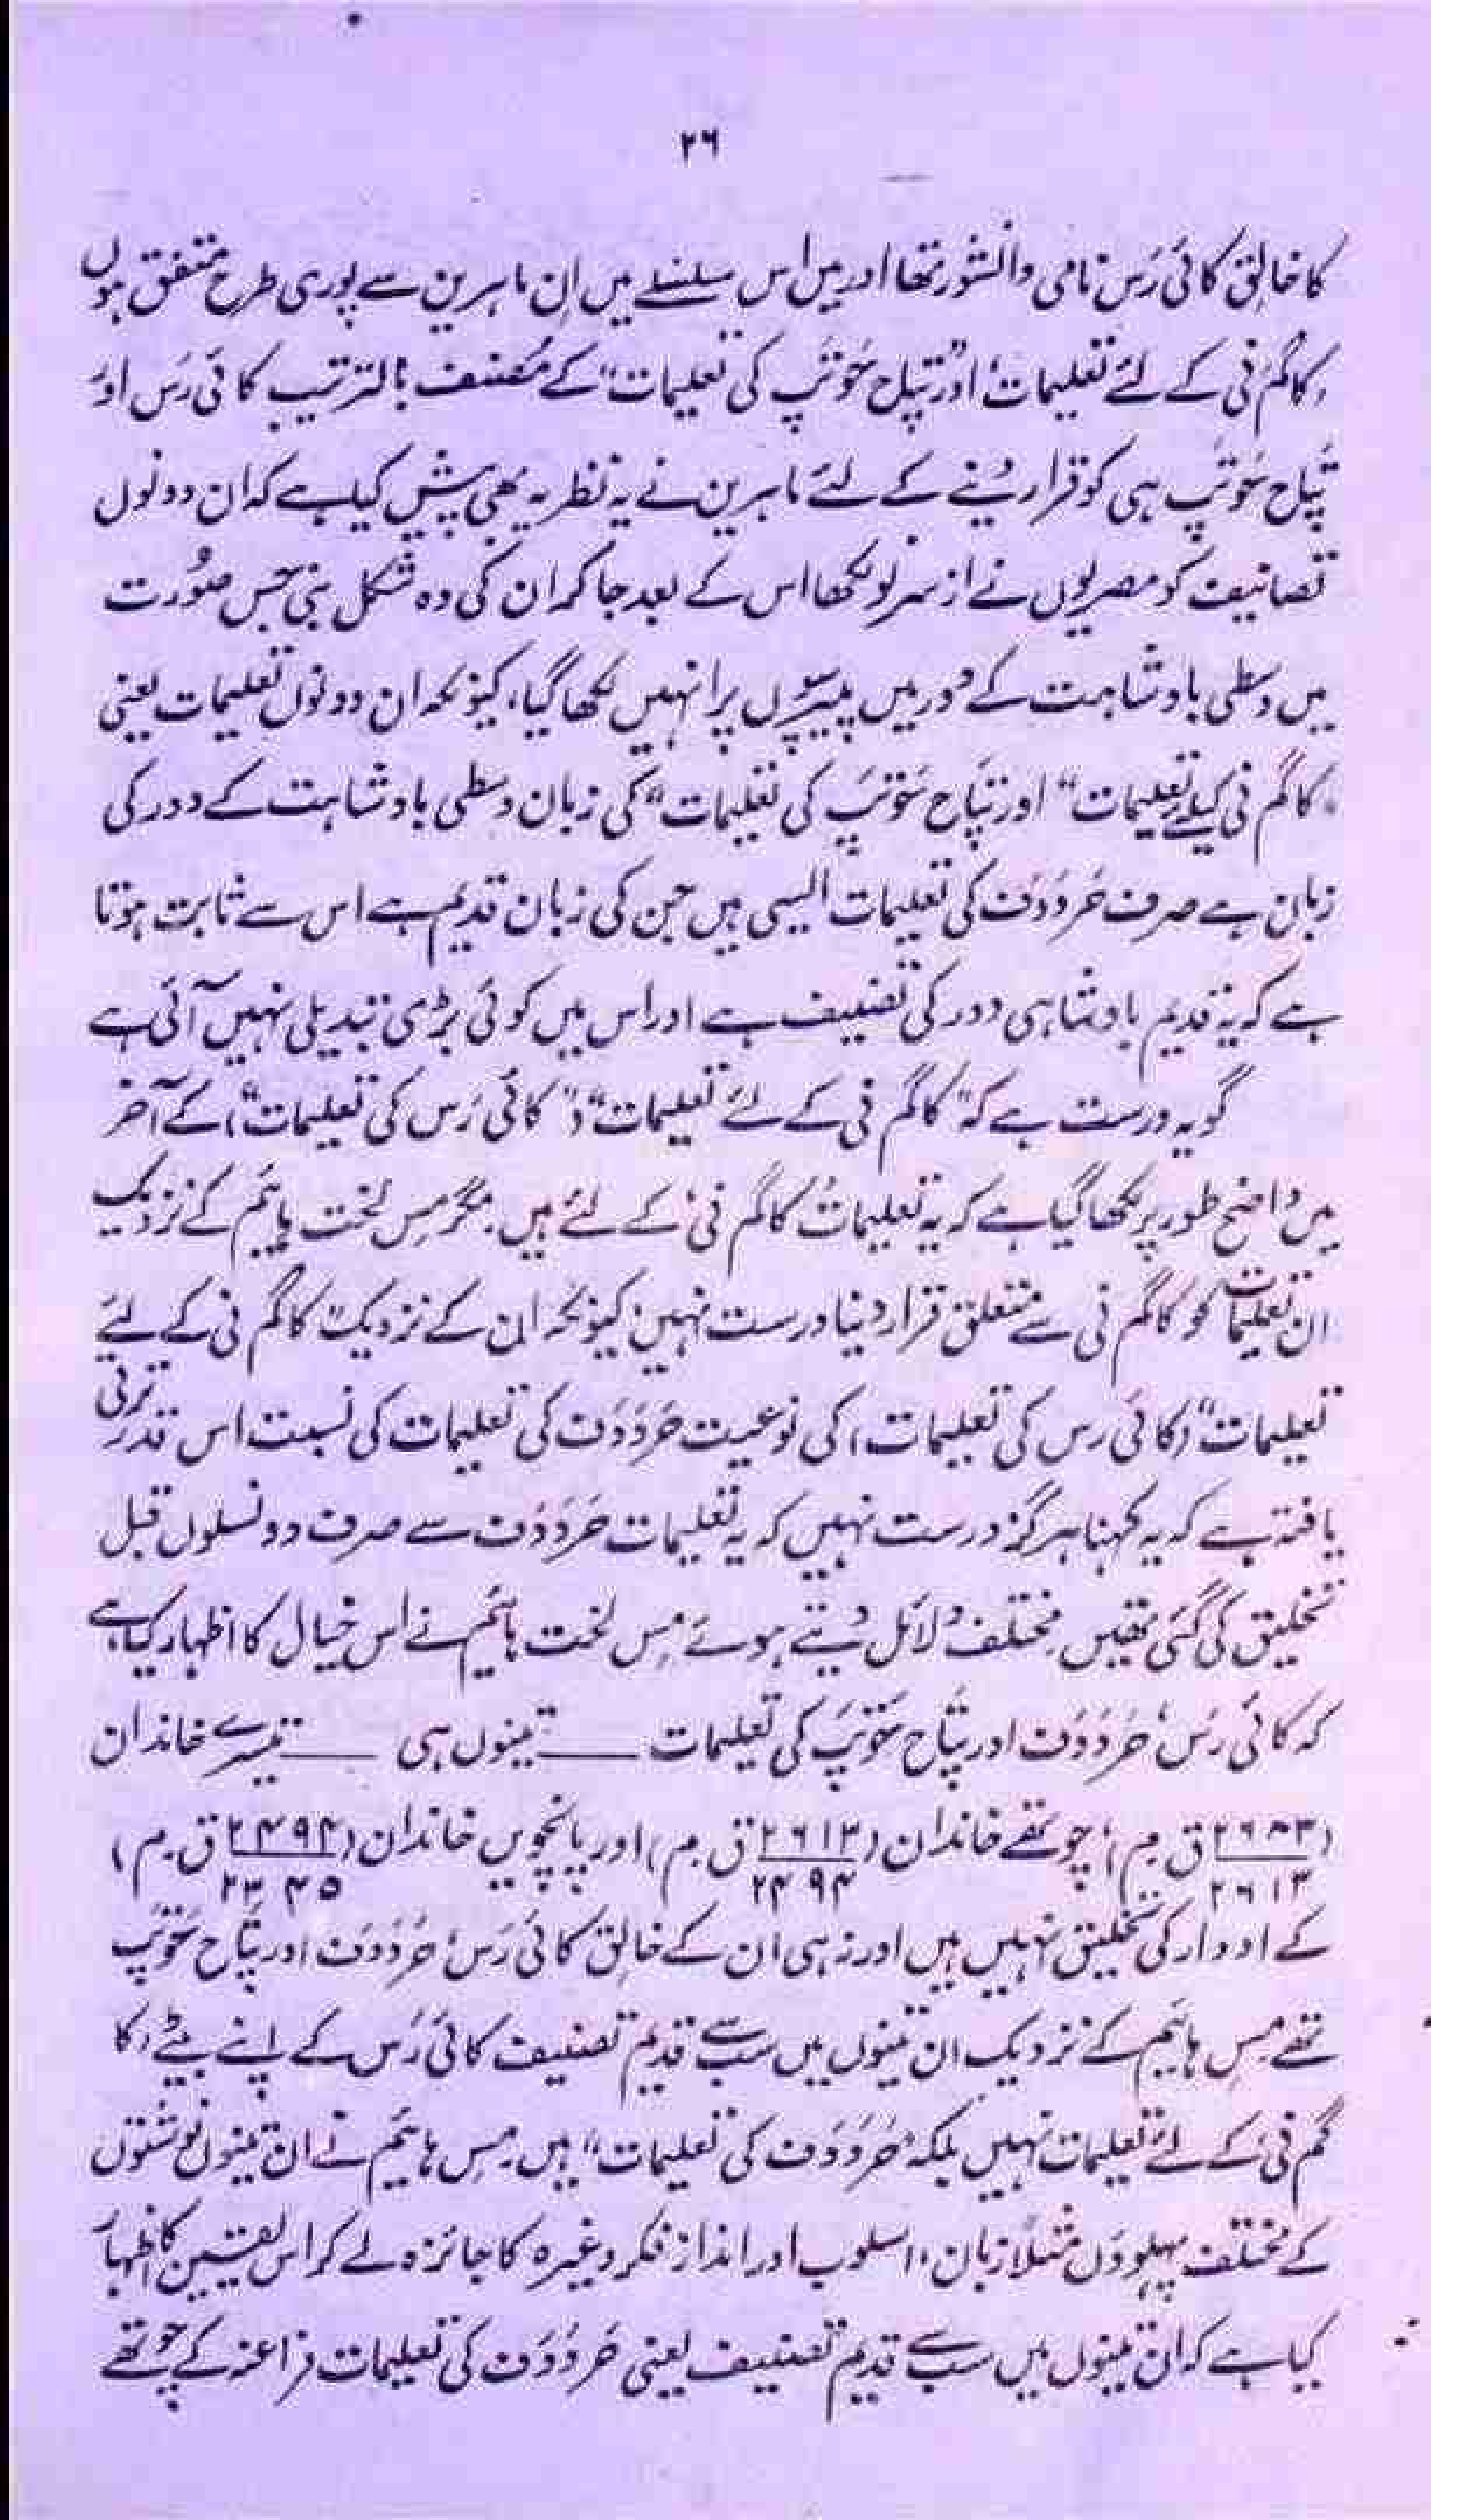 ۲۶
کا خالق کائی رَس نامی دانشور تھا اور میں اس سلسلے میں ان ماہرین سے پوری طرح متفق ہوں
"کاگم نی کے لئے تعلیمات" اور "پتاح حَوتپ کی تعلیمات" کے مُصنف بالترتیب کائی رَس اور
پتاح حَوتپ ہی کو قرار دینے کے لئے ماہرین نے یہ نظریہ بھی پیش کیا ہے کہ ان دونوں
تصانیف کو مصریوں نے از سرنو لکھا اس کے بعد جا کر ان کی وہ شکل بنی جس صُورت
میں وسطی بادشاہت کے دور میں پیپرسوں پر انہیں لکھا گیا، کیونکہ ان دونوں تعلیمات یعنی
"کاگم نی کیلئے تعلیمات" اور پتاح حَوتپ کی تعلیمات" کی زبان وسطی بادشاہت کے دور کی
زبان ہے صرف حَردَدَف کی تعلیمات ایسی ہیں جن کی زبان قدیم ہے اس سے ثابت ہوتا
ہے کہ یہ قدیم بادشاہی دور کی تصنیف ہے اور اس میں کوئی بڑی تبدیلی نہیں آئی ہے
گو یہ درست ہے کہ "کاگم نی کے لئے تعلیمات" (" کائی رَس کی تعلیمات") کے آخر
میں واضح طور پر لکھا گیا ہے کہ یہ تعلیمات کاگم نی کے لئے ہیں۔ مگر مِس لخت ہائیم کے نزدیک
ان تعلیمات کو کاگم نی سے متعلق قرار دینا درست نہیں؛ کیونکہ ان کے نزدیک "کاگم نی کے لئے
تعلیمات" (کائی رس کی تعلیمات) کی نوعیت حَردَدَف کی تعلیمات کی نسبت اس قدر ترقی
یافتہ ہے کہ یہ کہنا ہرگز درست نہیں کہ یہ تعلیمات حَردَدَف سے صرف دو نسلوں قبل
تخلیق کی گئی تھیں۔ مختلف دلائل دیتے ہوئے مِس لخت ہائیم نے اس خیال کا اظہار کیا ہے
کہ کائی رَس، حَردَدَف اور پتاح حَوتپ کی تعلیمات ــــــ تینوں ہی ــــــ تیسرے خاندان
(۲۶۸۳/۲۶۱۳ ق۔م)، چوتھے خاندان (۲۶۱۳/۲۴۹۴ ق۔م) اور پانچویں خاندان (۲۴۹۴/۲۳۴۵ ق۔م)
کے ادوار کی تخلیق نہیں ہیں اور نہ ہی ان کے خالق کائی رَس، حَردَدَف اور پتاح حَوتپ
تھے مِس ہائیم کے نزدیک ان تینوں میں سب سے قدیم تصنیف کائی رَس کے اپنے بیٹے "کا
گم نی کے لئے تعلیمات نہیں بلکہ "حَردَدَف کی تعلیمات" ہیں۔ مِس ہائیم نے ان تینوں نوشتوں
کے مختلف پہلوؤں مثلاً زبان، اسلوب اور انداز فکر وغیرہ کا جائزہ لے کر اس یقین کا اظہار
کیا ہے کہ ان تینوں میں سب سے قدیم تصنیف یعنی حَردَدَف کی تعلیمات فراعنہ کے چوتھے